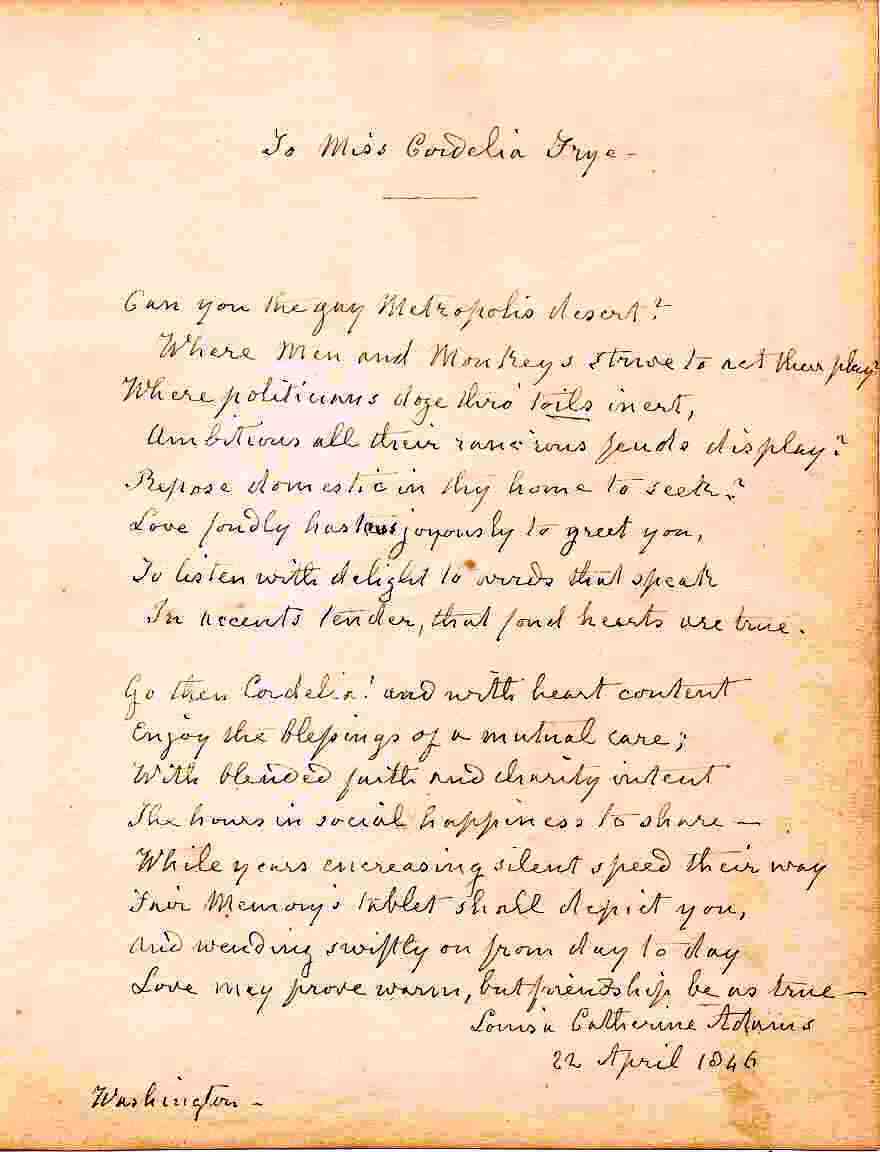 To Miss Cordelia Frye -
Can you the gay Metropolis desert?
Where Men and Monkeys strive to act their play?
Where politicians doze thro' toils inert,
Ambitious all their ranc'rous feuds display?
Repose domestic in thy home to seek?
Love fondly hastens joyously to greet you,
To listen with delight to words that speak
In accents tender, that fond hearts are true.
Go then Cordelia! and with heart content
Enjoy the blessings of a mutual care;
With blended faith and charity intent
The hours in social happiness to share —
While years encreasing silent speed their way
Fair Memory's tablet shall depict you,
And wending swiftly on from day to day
Love may prove warm, but friendship be as true —
Louisa Catherine Adams
22 April 1846
Washington -